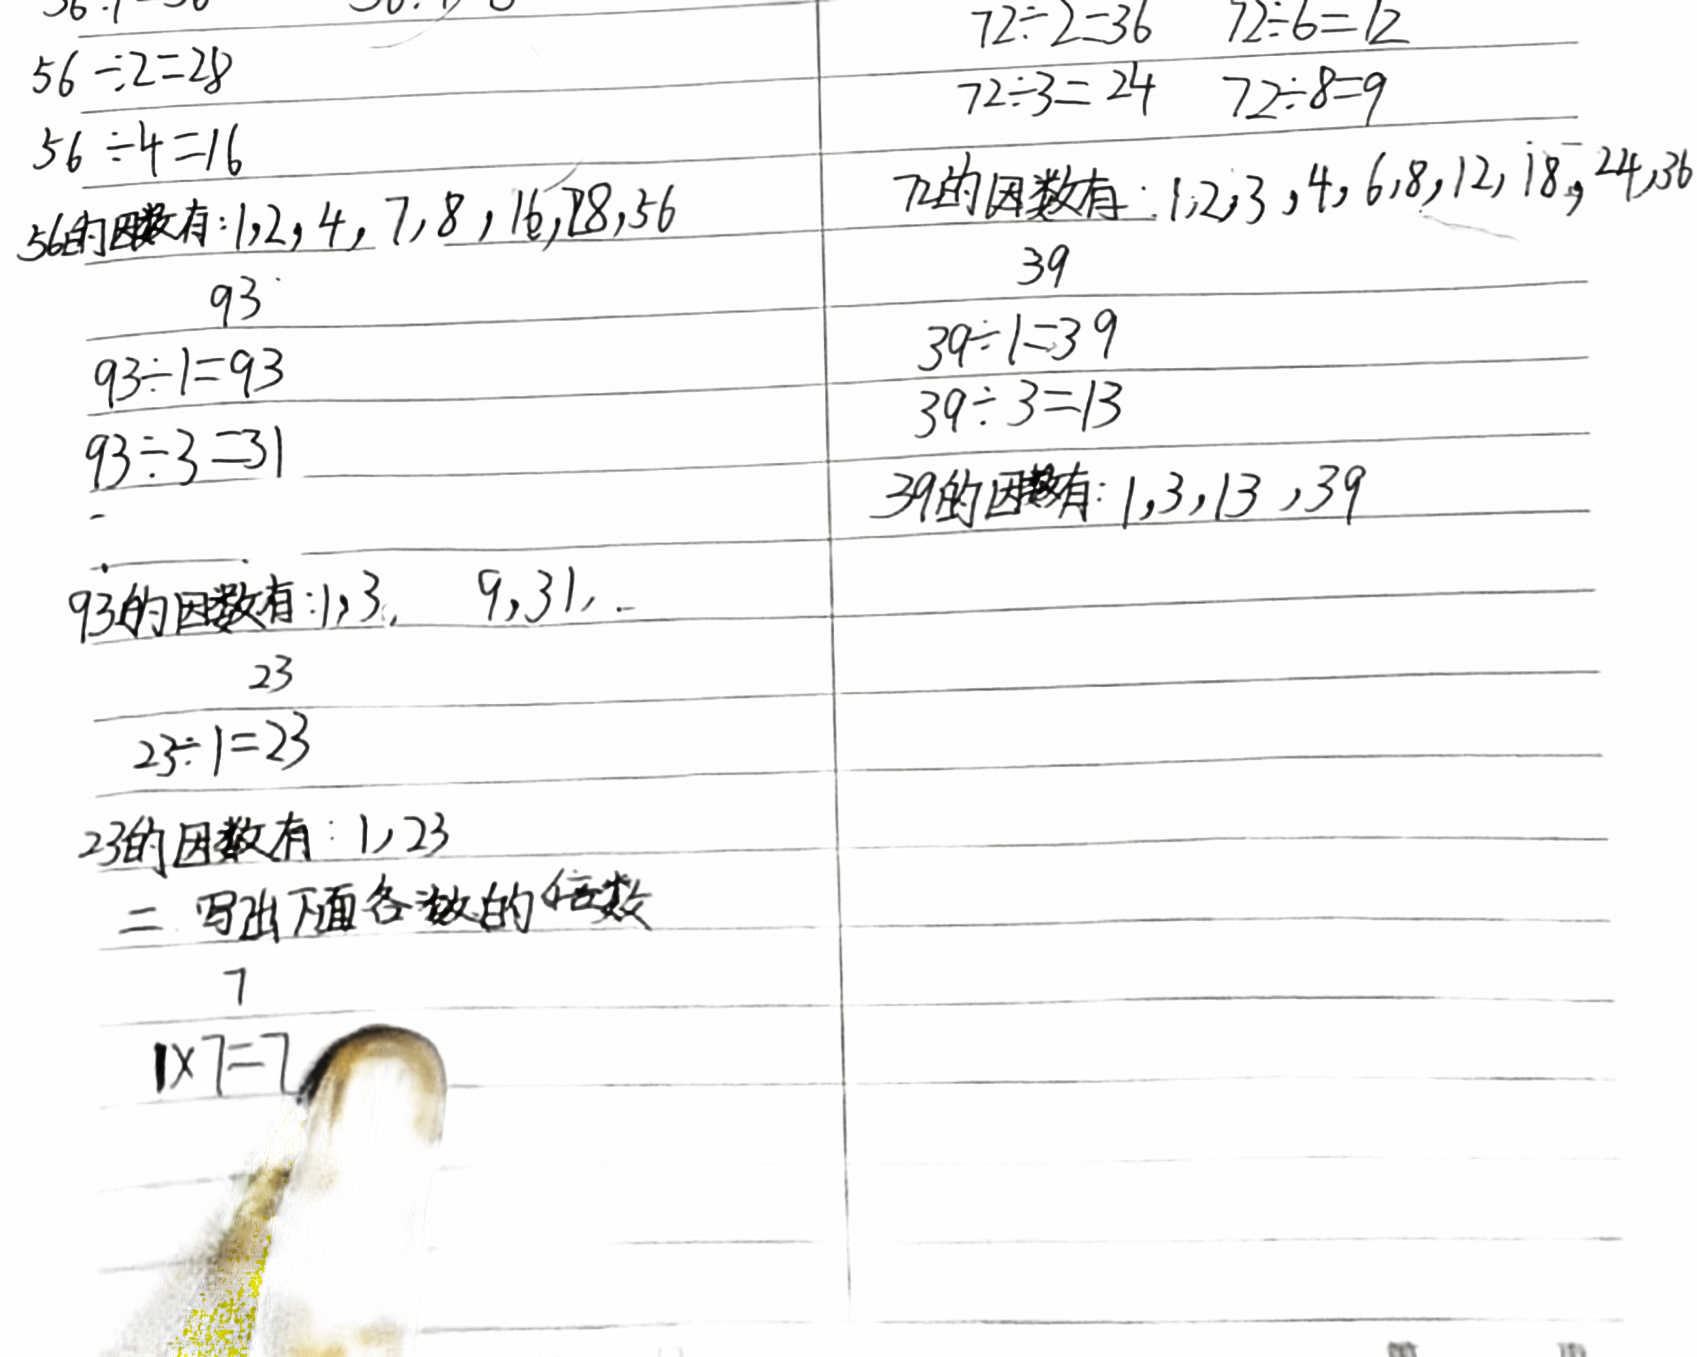 56÷2=28
56÷4=16
56的因数有:1,2,4,7,8,16,28,56
93
93÷1=93
93÷3=31
93的因数有:1,3, 9,31,
23
23÷1=23
23的因数有:1,23
二 写出下面各数的倍数
7
1×7=7
72÷2=36 72÷6=12
72÷3=24 72÷8=9
72的因数有:1,2,3,4,6,8,12,18,24,36
39
39÷1=39
39÷3=13
39的因数有:1,3,13,39